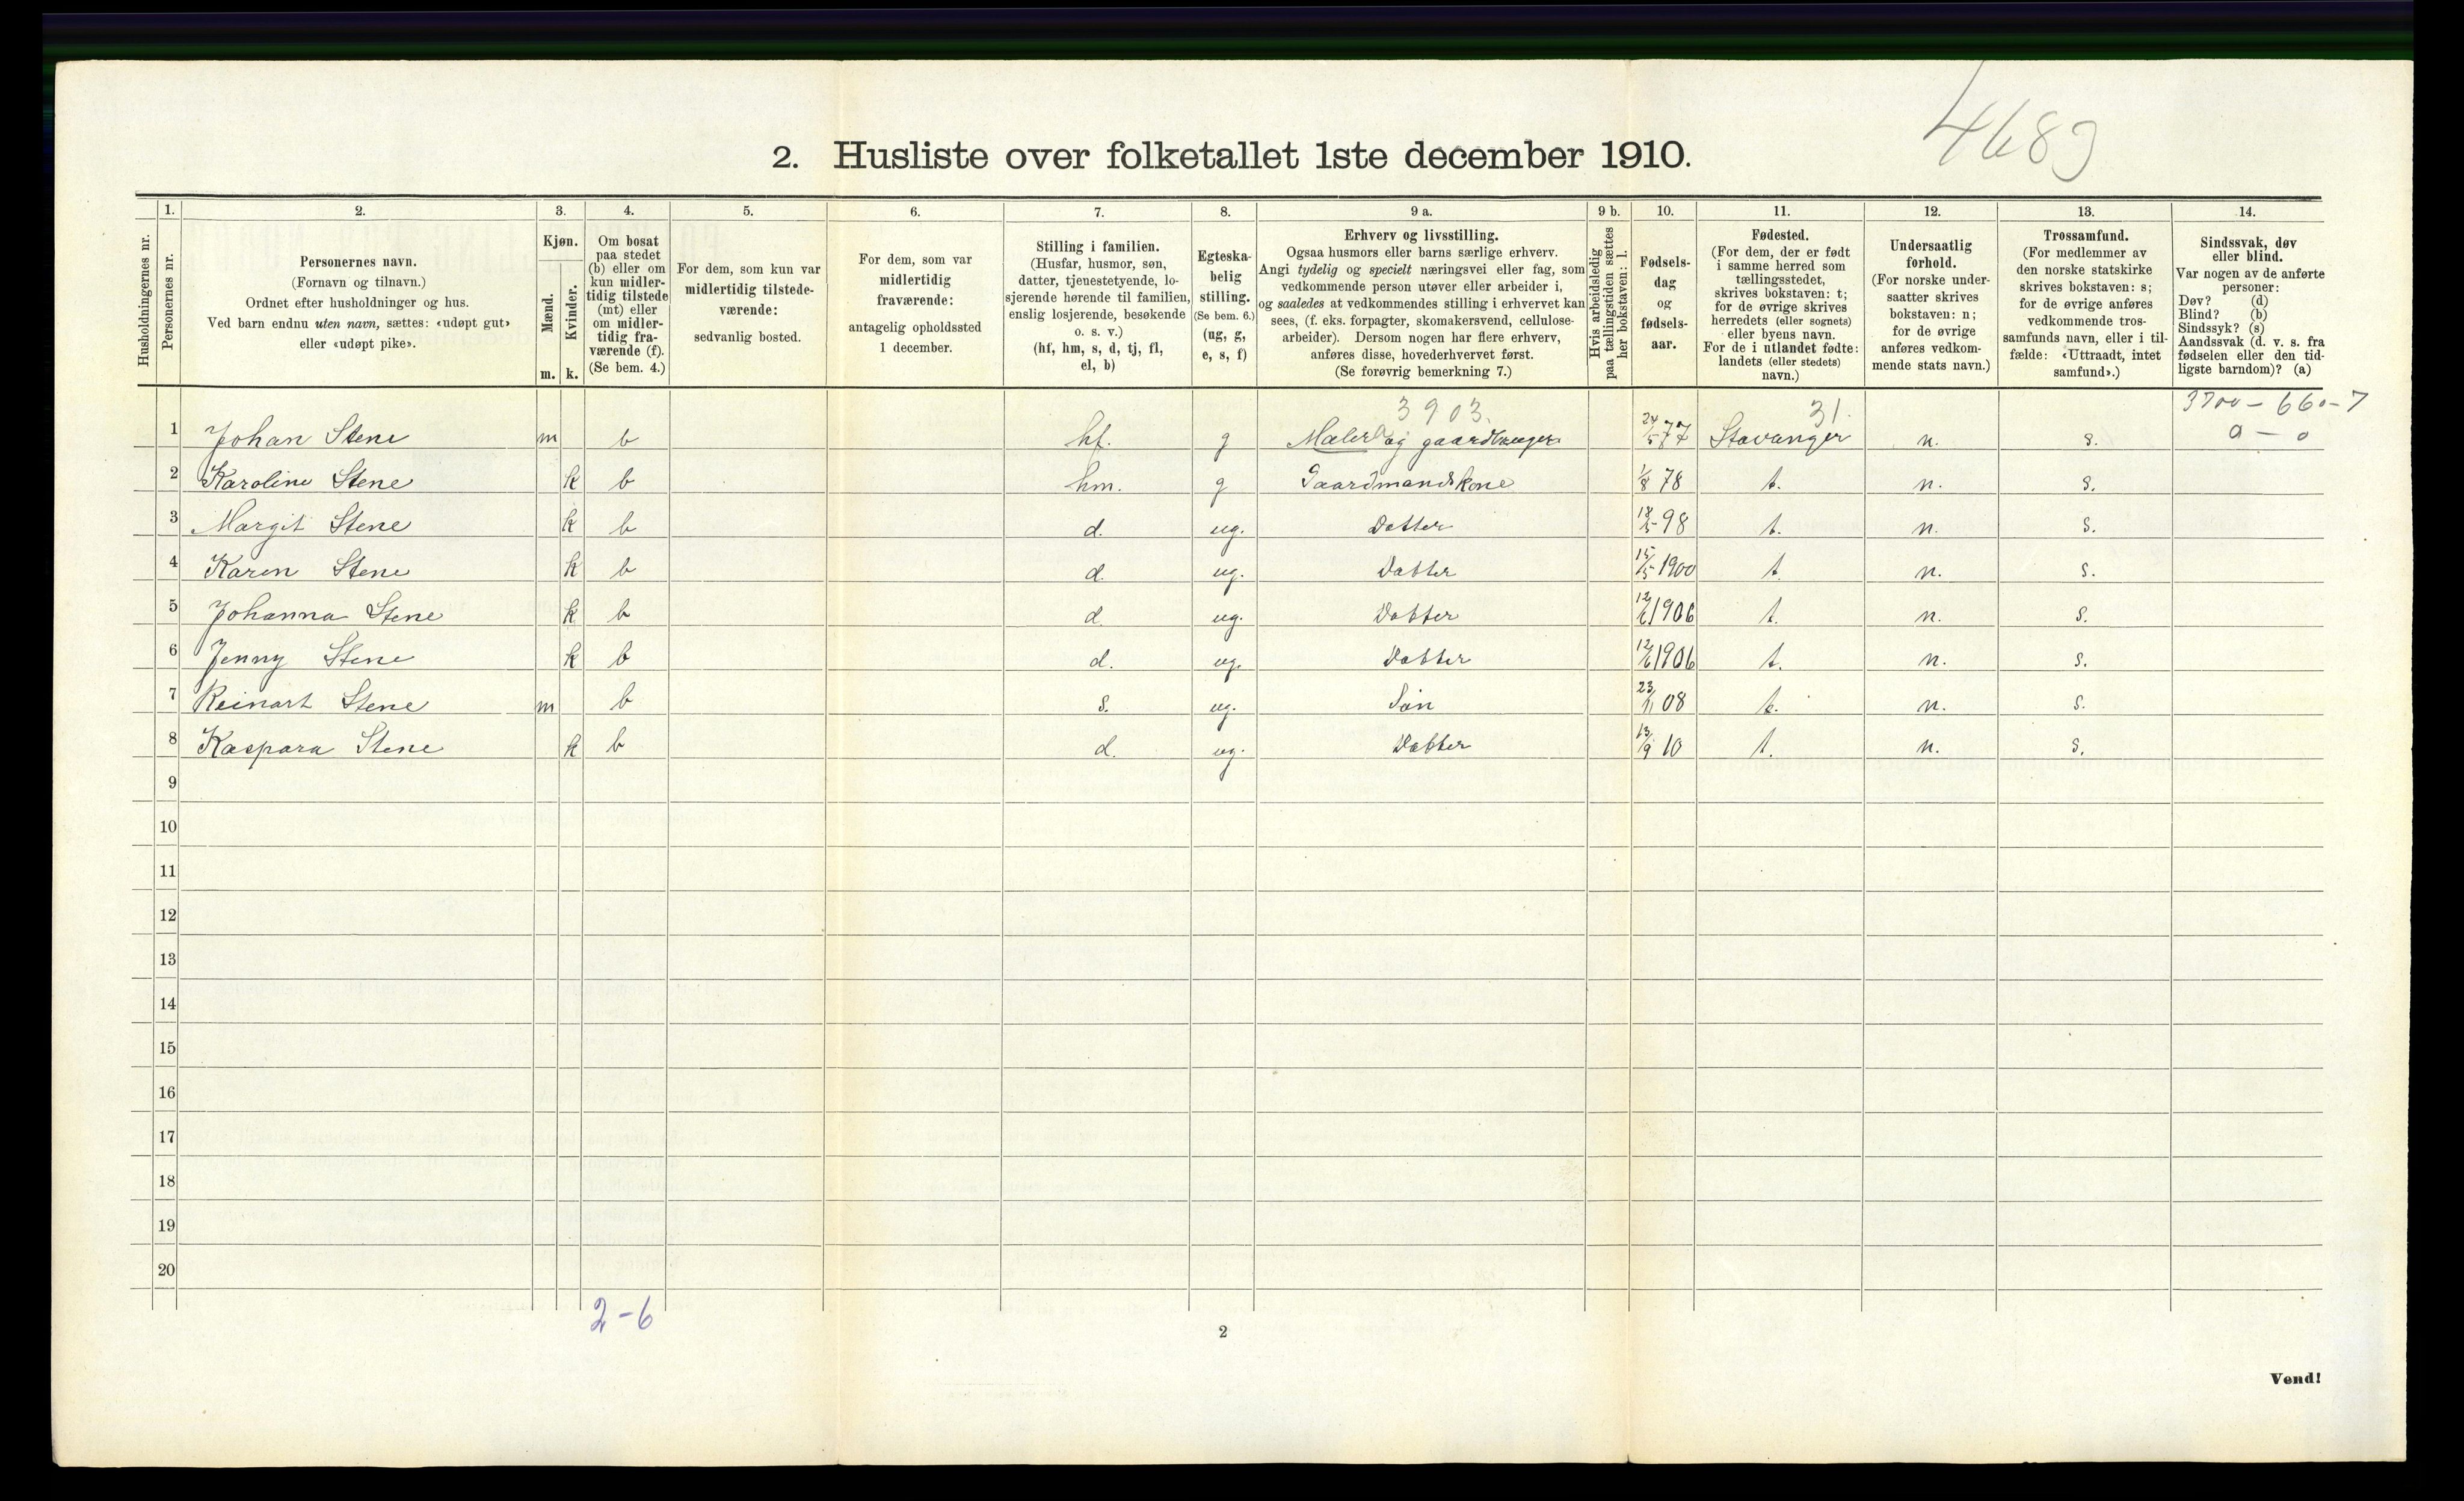 4689
2. Husliste over folketallet 1ste december 1910.
1. 2. 3. 4. 5. 6. 7. 8. 9 a. 9 b. 10. 11. 12. 13. 14.
Husholdningernes nr.
Personernes nr.
Personernes navn.
(Fornavn og tilnavn.)
Ordnet efter husholdninger og hus.
Ved barn endnu uten navn, sættes: «udøpt gut»
eller «udøpt pike».
Kjøn.
Mænd.
Kvinder.
m. k.
Om bosat
paa stedet
(b) eller om
kun midler-
tidig tilstede
(mt) eller
om midler-
tidig fra-
værende (f).
(Se bem. 4.)
For dem, som kun var
midlertidig tilstede-
værende:
sedvanlig bosted.
For dem, som var
midlertidig
fraværende:
antagelig opholdssted
1 december.
Stilling i familien.
(Husfar, husmor, søn,
datter, tjenestetyende, lo-
sjerende hørende til familien,
enslig losjerende, besøkende
o. s. v.)
(hf, hm, s, d, tj, fl,
el, b)
Egteska-
belig
stilling.
(Se bem. 6.)
(ug, g,
e, s, f)
Erhverv og livsstilling.
Ogsaa husmors eller barns særlige erhverv.
Angi tydelig og specielt næringsvei eller fag, som
vedkommende person utøver eller arbeider i,
og saaledes at vedkommendes stilling i erhvervet kan
sees, (f. eks. forpagter, skomakersvend, cellulose-
arbeider). Dersom nogen har flere erhverv,
anføres disse, hovederhvervet først.
(Se forøvrig bemerkning 7.)
Hvis arbeidsledig
paa tællingstiden sættes
her bokstaven: l.
Fødsels-
dag
og
fødsels-
aar.
Fødested.
(For dem, der er født
i samme herred som
tællingsstedet,
skrives bokstaven: t;
for de øvrige skrives
herredets (eller sognets)
eller byens navn.
For de i utlandet fødte:
landets (eller stedets)
navn.)
Undersaatlig
forhold.
(For norske under-
saatter skrives
bokstaven: n;
for de øvrige
anføres vedkom-
mende stats navn.)
Trossamfund.
(For medlemmer av
den norske statskirke
skrives bokstaven: s;
for de øvrige anføres
vedkommende tros-
samfunds navn, eller i til-
fælde: «Uttraadt, intet
samfund».)
Sindssvak, døv
eller blind.
Var nogen av de anførte
personer:
Døv? (d)
Blind? (b)
Sindssyk? (s)
Aandssvak (d. v. s. fra
fødselen eller den tid-
ligste barndom)? (a)
3903. 31. 3700-660-7
1 Johan Stene m b hf. g Maler og gaardbruger 24/5 77 Stavanger n. s. 0 - 0
2 Karoline Stene k b hm. g Gaardmandskone 1/8 78 t. n. s.
3 Margit Stene k b d. ug. Datter 18/5 98 t. n. s.
4 Karen Stene k b d. ug. Datter 15/5 1900 t. n. s.
5 Johanna Stene k b d. ug. Datter 12/6 1906 t. n. s.
6 Jenny Stene k b d. ug. Datter 12/6 1906 t. n. s.
7 Reinart Stene m b s. ug. Søn 23/11 08 t. n. s.
8 Kaspara Stene k b d. ug. Datter 13/9 10 t. n. s.
9
10
11
12
13
14
15
16
17
18
19
20
2-6
2
Vend!